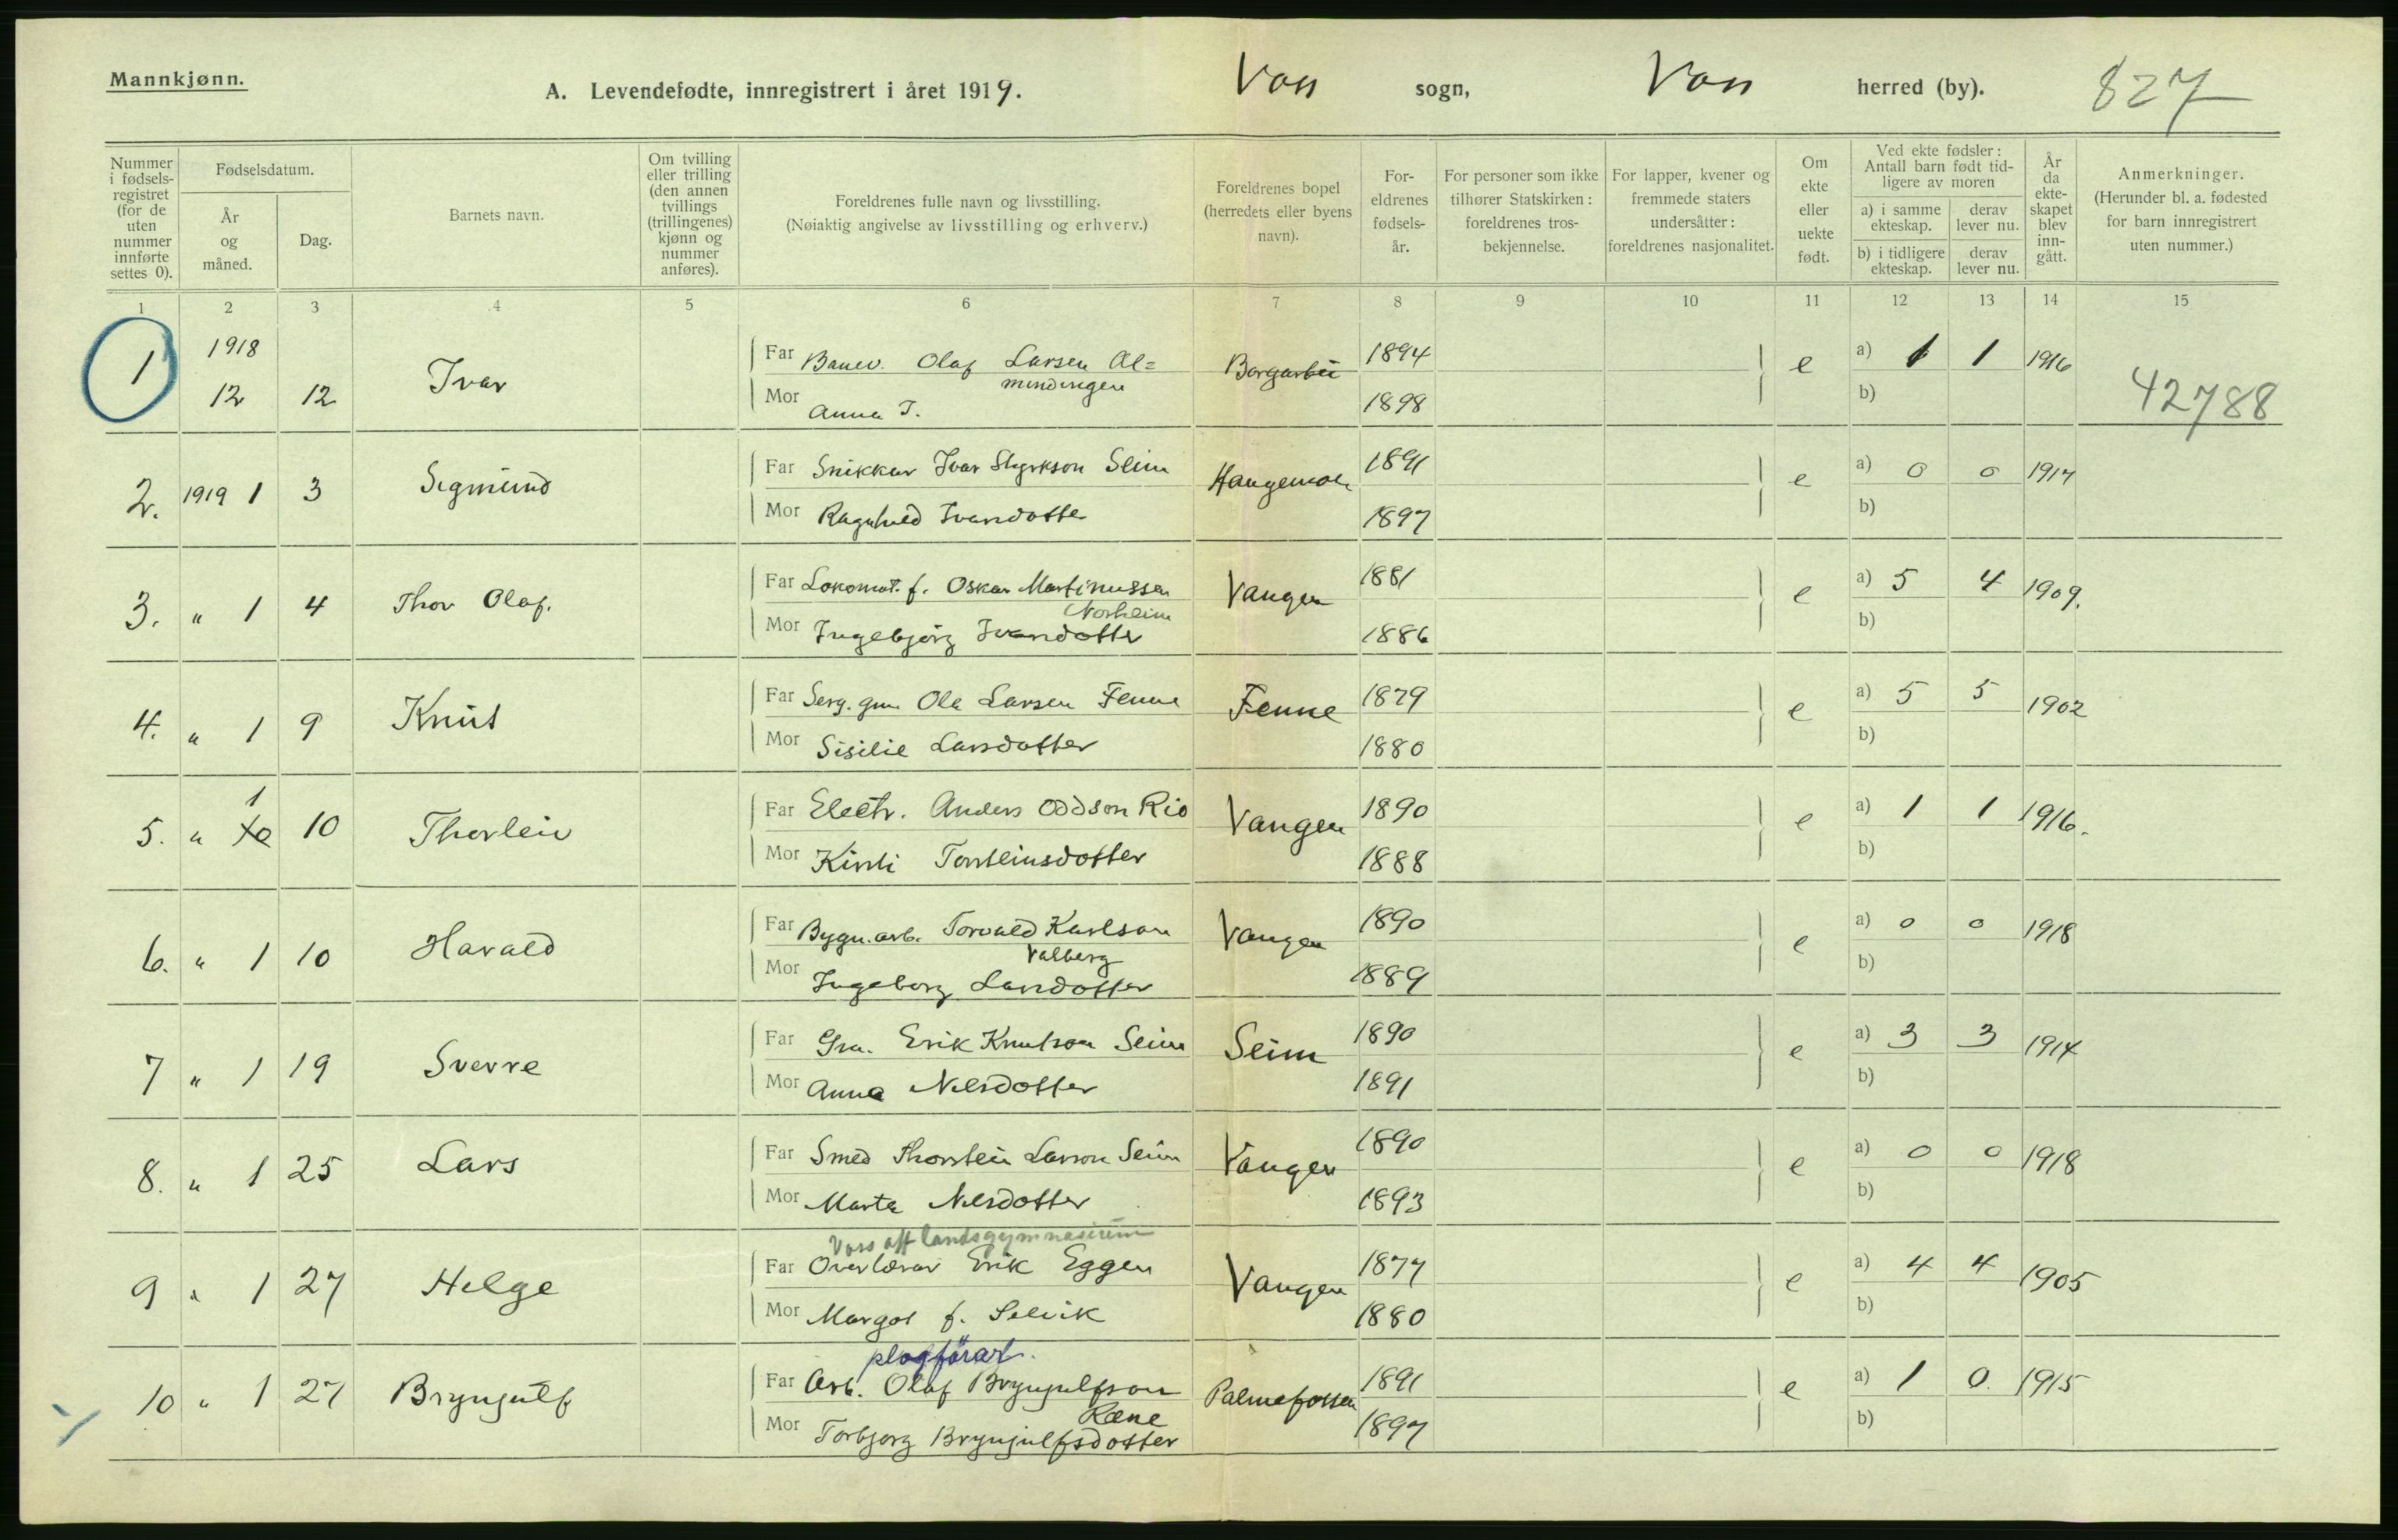 Mannkjønn.
A. Levendefødte, innregistrert i året 1919.
Voss sogn,
Voss herred (by).
827
Nummer i fødsels-registret (for de uten nummer innførte settes 0).
Fødselsdatum.
År og måned.
Dag.
Barnets navn.
Om tvilling eller trilling (den annen tvillings (trillingenes) kjønn og nummer anføres).
Foreldrenes fulle navn og livsstilling.
(Nøiaktig angivelse av livsstilling og erhverv.)
Foreldrenes bopel (herredets eller byens navn).
For-eldrenes fødsels-år.
For personer som ikke tilhører Statskirken: foreldrenes tros-bekjennelse.
For lapper, kvener og fremmede staters undersåtter: foreldrenes nasjonalitet.
Om ekte eller uekte født.
Ved ekte fødsler: Antall barn født tid-ligere av moren
a) i samme ekteskap.
derav lever nu.
b) i tidligere ekteskap.
derav lever nu.
År da ekte-skapet blev inn-gått.
Anmerkninger.
(Herunder bl. a. fødested for barn innregistrert uten nummer.)
1 2 3 4 5 6 7 8 9 10 11 12 13 14 15
1 1918 12 12 Ivar
Far Banev. Olaf Larsen Al=mindingen 1894 e a) 1 1 1916
Mor Anna I. 1898 b)
42788
2. 1919 1 3 Sigmund
Far Snikkar Ivar Styrkson Seim 1891 e a) 0 0 1917
Mor Ragnhild Ivarsdotter 1897 b)
3. " 1 4 Thor Olaf.
Far Lokomot. f. Oskar Martinussen Norheim Vangen 1881 e a) 5 4 1909.
Mor Ingebjørg Ivarsdotter 1886 b)
4. " 1 9 Knut
Far Serg. gm. Ola Larsen Fenne Fenne 1879 e a) 5 5 1902
Mor Sisilie Larsdotter 1880 b)
5. " 1 10 Thorlein
Far Electr. Anders Oddson Rio Vangen 1890 e a) 1 1 1916.
Mor Kirsti Torsteinsdotter 1888 b)
6. " 1 10 Harald
Far Bygn.arb. Torvald Karlson Valberg Vangen 1890 e a) 0 0 1918
Mor Ingeborg Larsdotter 1889 b)
7 " 1 19 Sverre
Far Erik Knutson Seim Seim 1890 e a) 3 3 1914
Mor Anna Nilsdotter 1891 b)
8. " 1 25 Lars
Far Smed Thorstein Larson Seim Vangen 1890 e a) 0 0 1918
Mor Marta Nilsdotter 1893 b)
Voss off landsgymnasium
9 " 1 27 Helge
Far Overlærar Erik Eggen Vangen 1877 e a) 4 4 1905
Mor Margot f. Selvik 1880 b)
plogförar.
10 " 1 27 Brynjulf
Far Arb. Olaf Brynjulfson Rene Palmafossen 1891 e a) 1 0. 1915
Mor Torbjørg Brynjulfsdotter 1897 b)